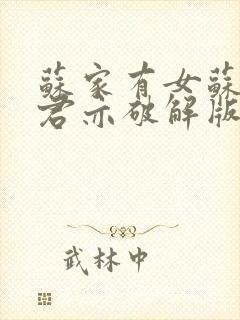 蘇家有女蘇
君亦破解版
武林中